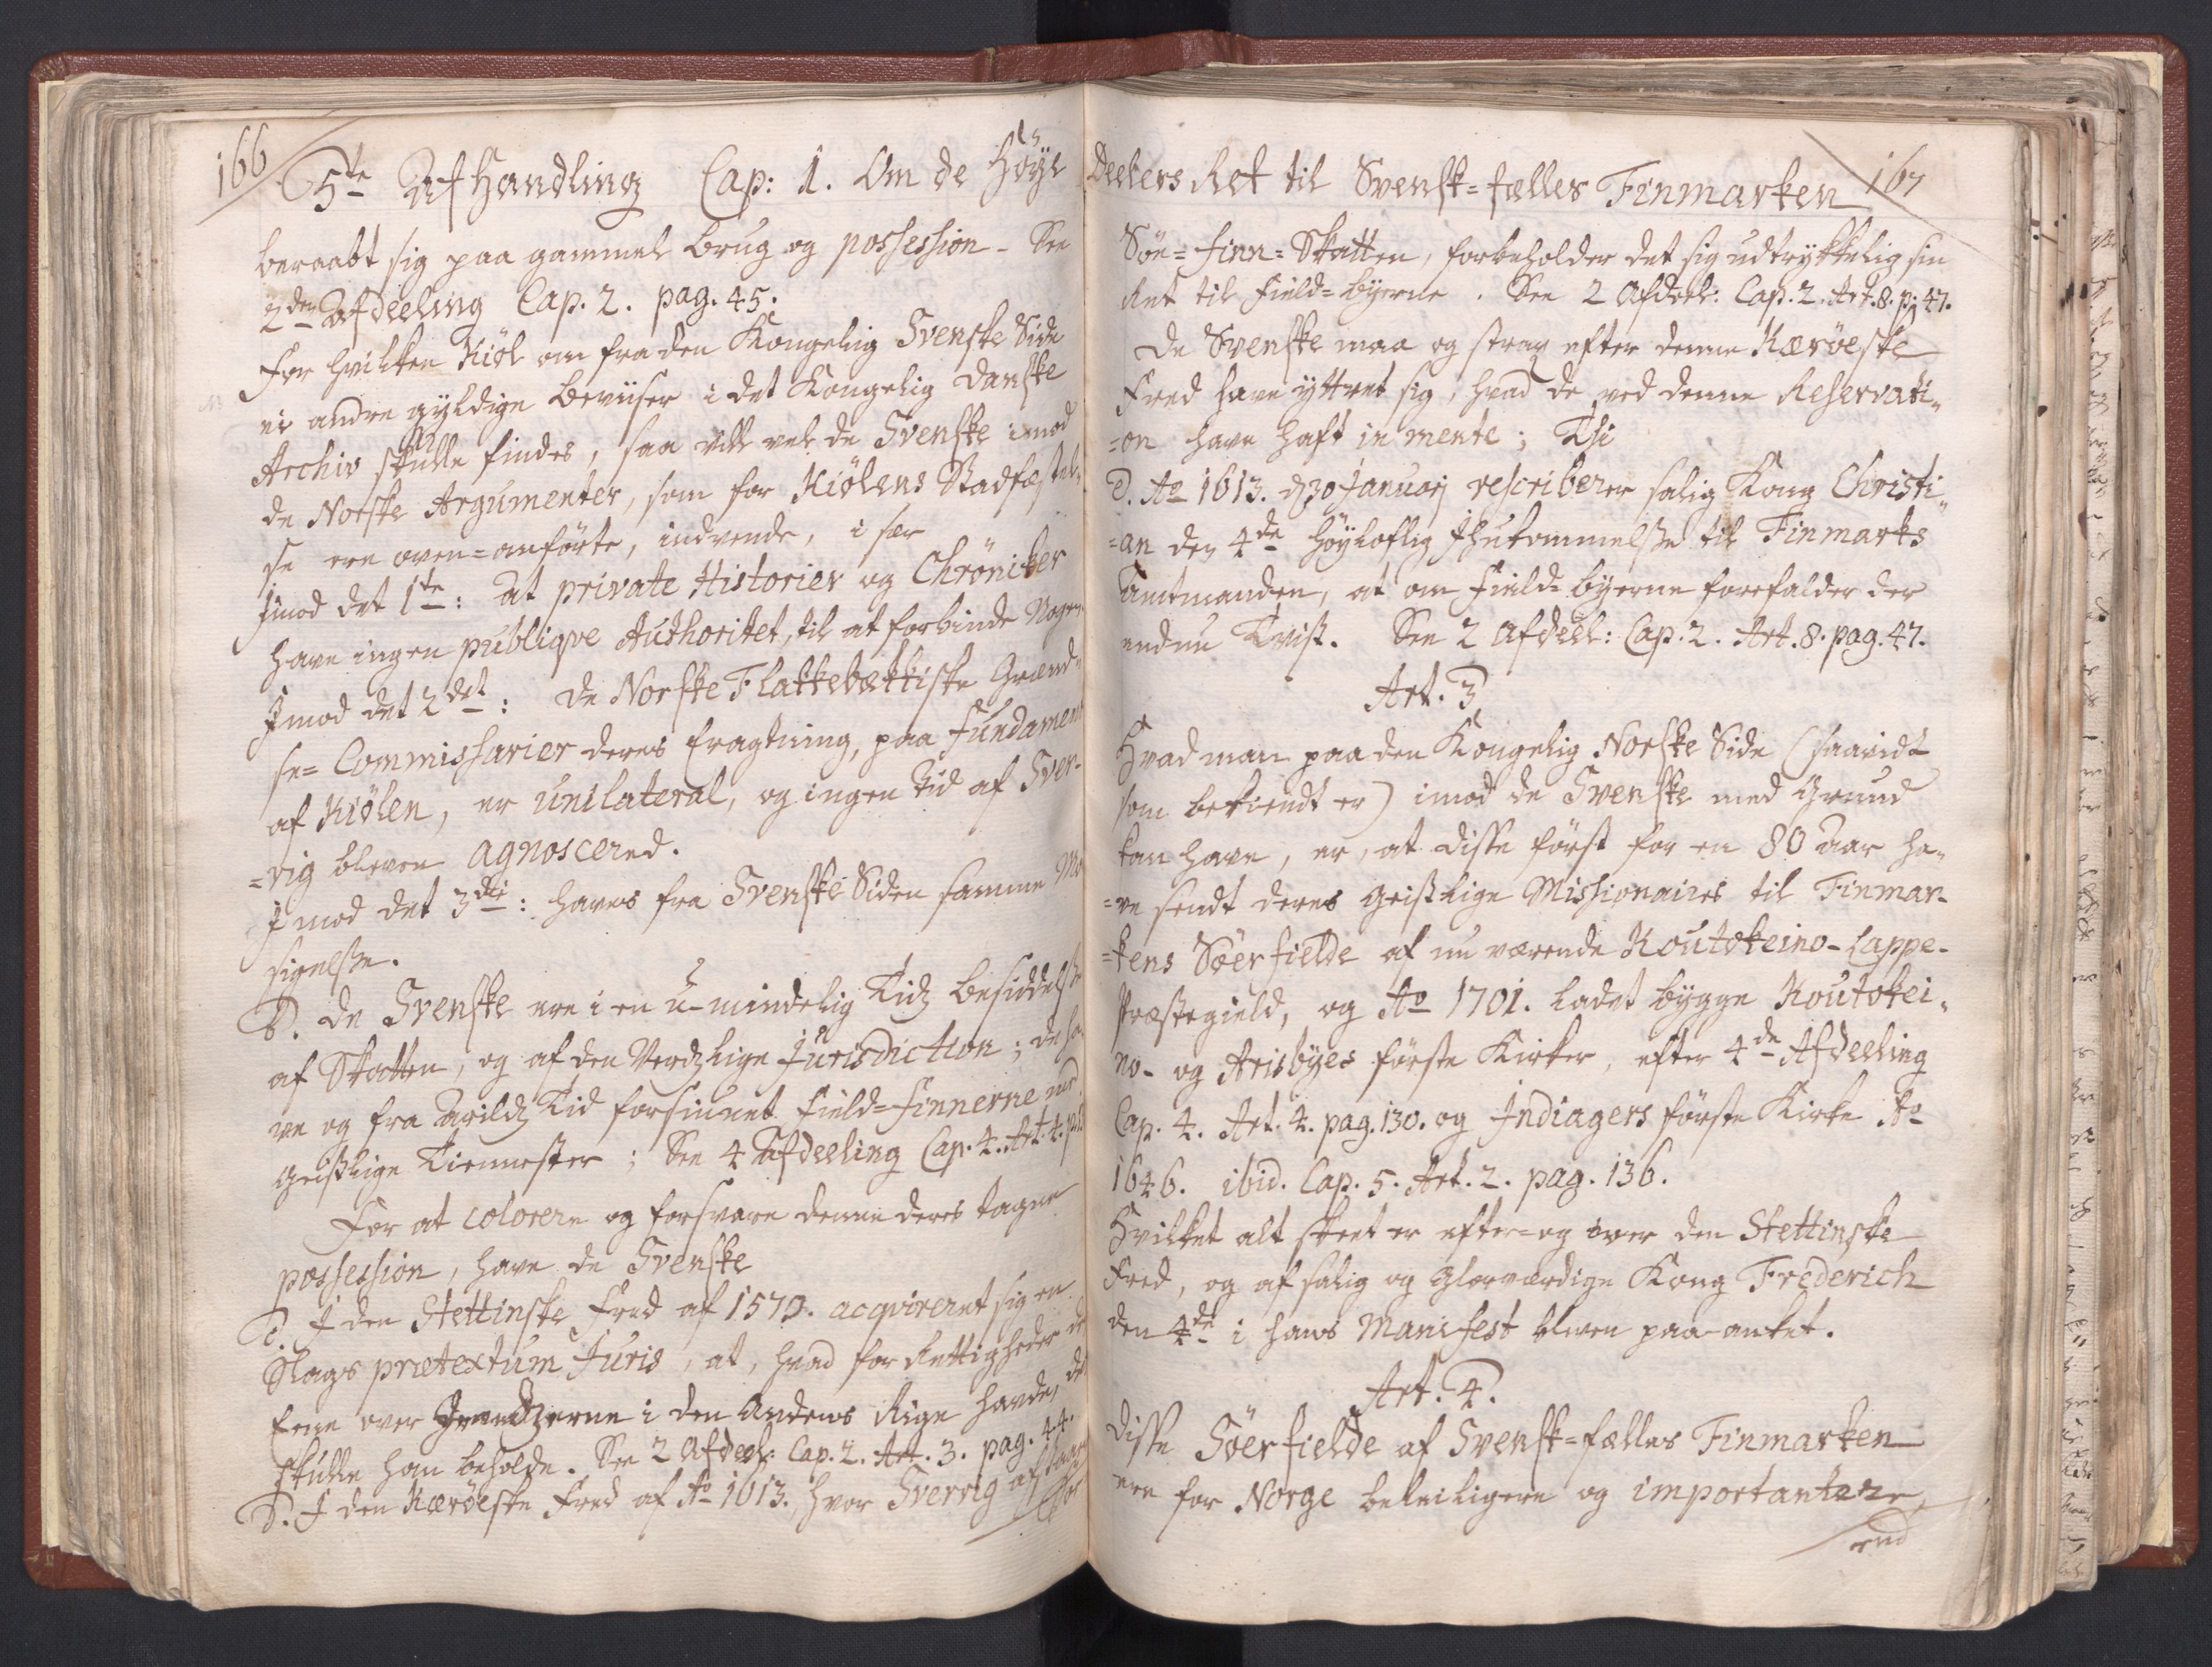 166
5te Afhandling Cap: 1. Om de Høÿe
beraabt sig paa gammel brug og possession - See
2den Afdeeling Cap. 2. pag. 45.
For hvilken Kiöl om fra den Kongelig Svenske Side
ei andre gyldige Beviiser i det Kongelig Danske
Archiv skulle findes, saa vill vel de Svenske imod
de Norske Argumenter, som for Kiölens Stadfæstel-
se ere oven=anförte, indvende, i sær
Imod det 1te: at private Historier og Chröniker
have ingen publiqve Authoritet, til at forbinde Nogen
Imod det 2det: de Norske Flakkebækkiske Grænd-
se= Commissarier deres Eragtning, paa Fundament
af Kiölen, er unilateral, og ingen Tid af Sver-
=rig bleven agnoscered.
Imod det 3die: haves fra Svenske Siden samme
sigelsse.
B. de Svenske ere i en u-mindelig Tidz besiddelsse
af Skatten, og af den Verdzlige Jurisdiction; de ha
ve og fra Arildz Tid forsiunet Field=Finnerne med
geistlige Tiennester; See 4 Afdeeling Cap. 4. Art. 4.
For at colorere og forsvare denne deres tagne
possession, have de Svenske
C. I den Stettinske Fred af 1570. acqvireret sig en
Slags prætextum Juris, at, hvad for Rettigheder
Eene over Grendzerne i den Andens Rige havde, de
skulle han beholde. See 2 Afdeel: Cap. 2. Art. 3. pag. 44.
D. I den Kæröeske Fred af Ao 1613., hvor Sverrig afstaar
Söe
Deelers Ret til Svensk=fælles Finmarken
167
Söe=Finn=Skatten, forbeholder det sig udtrykkelig sin
Ret til Field=byerne. See 2 Afdeel: Cap. 2. Art. 8. p: 47.
De Svenske maa og strax efter denne Kæröeske
Fred have yttret sig, hvad de ved denne Reservati-
=on have haft in mente; Thi
E. Ao 1613. d 30 Januarj rescriberer salig Kong Christi-
=an den 4de Höÿloflig Ihukommelsse til Finmarks
Amtmanden, at om Field=byerne forefalder der
endnu Tvist. See 2 Afdeel: Cap. 2. Art. 8. pag. 47.
Art. 3
Hvad man paa den Kongelig Norske Side (saavidt
som bekiendt er) imod de Svenske med Grund
kan have, er, at disse först for en 80 Aar ha-
=ve sendt deres geistlige Missionaires til Finmar-
=kens Söerfielde af nu værende Koutokeino-Lappe-
Præstegield, og Ao 1701. ladet bygge Koutokei-
no- og Arisbyes förste Kirker, efter 4de Afdeeling
Cap. 4. Art. 4. pag. 130. og Indiagers förste Kirke Ao
1646. ibid. Cap. 5. Art. 2. pag. 136.
Hvilket alt skeet er efter= og over den Stettinske
Fred, og af salig og Glorværdige Kong Frederich
den 4de i hans Manifest bleven paa-anket.
Art. 4.
Disse Söerfielde af Svensk=fælles Finmarken
ere for Norge beleiligere og importantere,
end